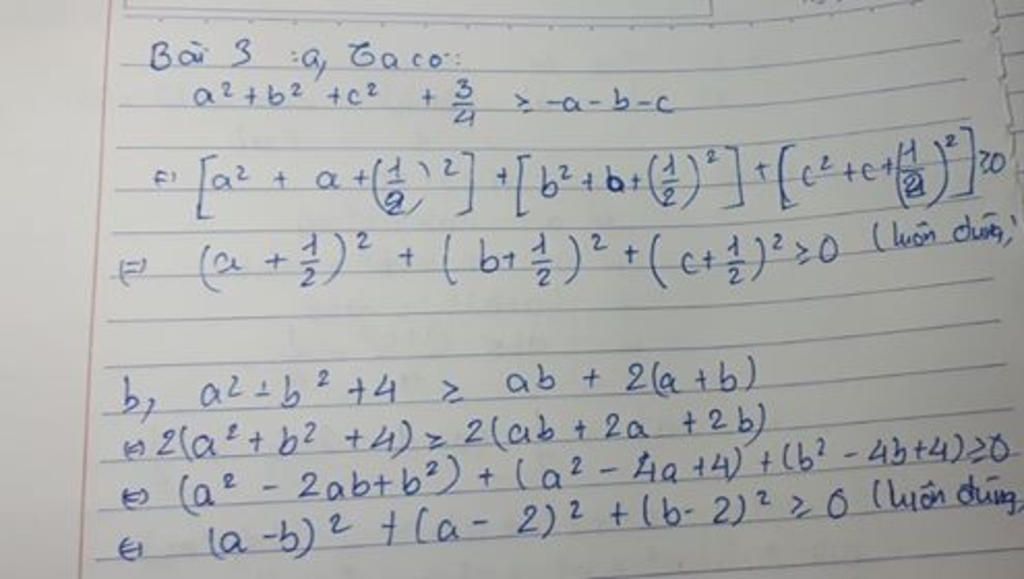 Bài 3 : a, Ta có :
a² + b² + c² + 3/4 ≥ -a - b - c
⇔ [a² + a + (1/2)²] + [b² + b + (1/2)²] + [c² + c + (1/2)²] ≥ 0
⇔ (a + 1/2)² + (b + 1/2)² + (c + 1/2)² ≥ 0 (luôn đúng)
b, a² + b² + 4 ≥ ab + 2(a + b)
⇔ 2(a² + b² + 4) ≥ 2(ab + 2a + 2b)
⇔ (a² - 2ab + b²) + (a² - 4a + 4) + (b² - 4b + 4) ≥ 0
⇔ (a - b)² + (a - 2)² + (b - 2)² ≥ 0 (luôn đúng)